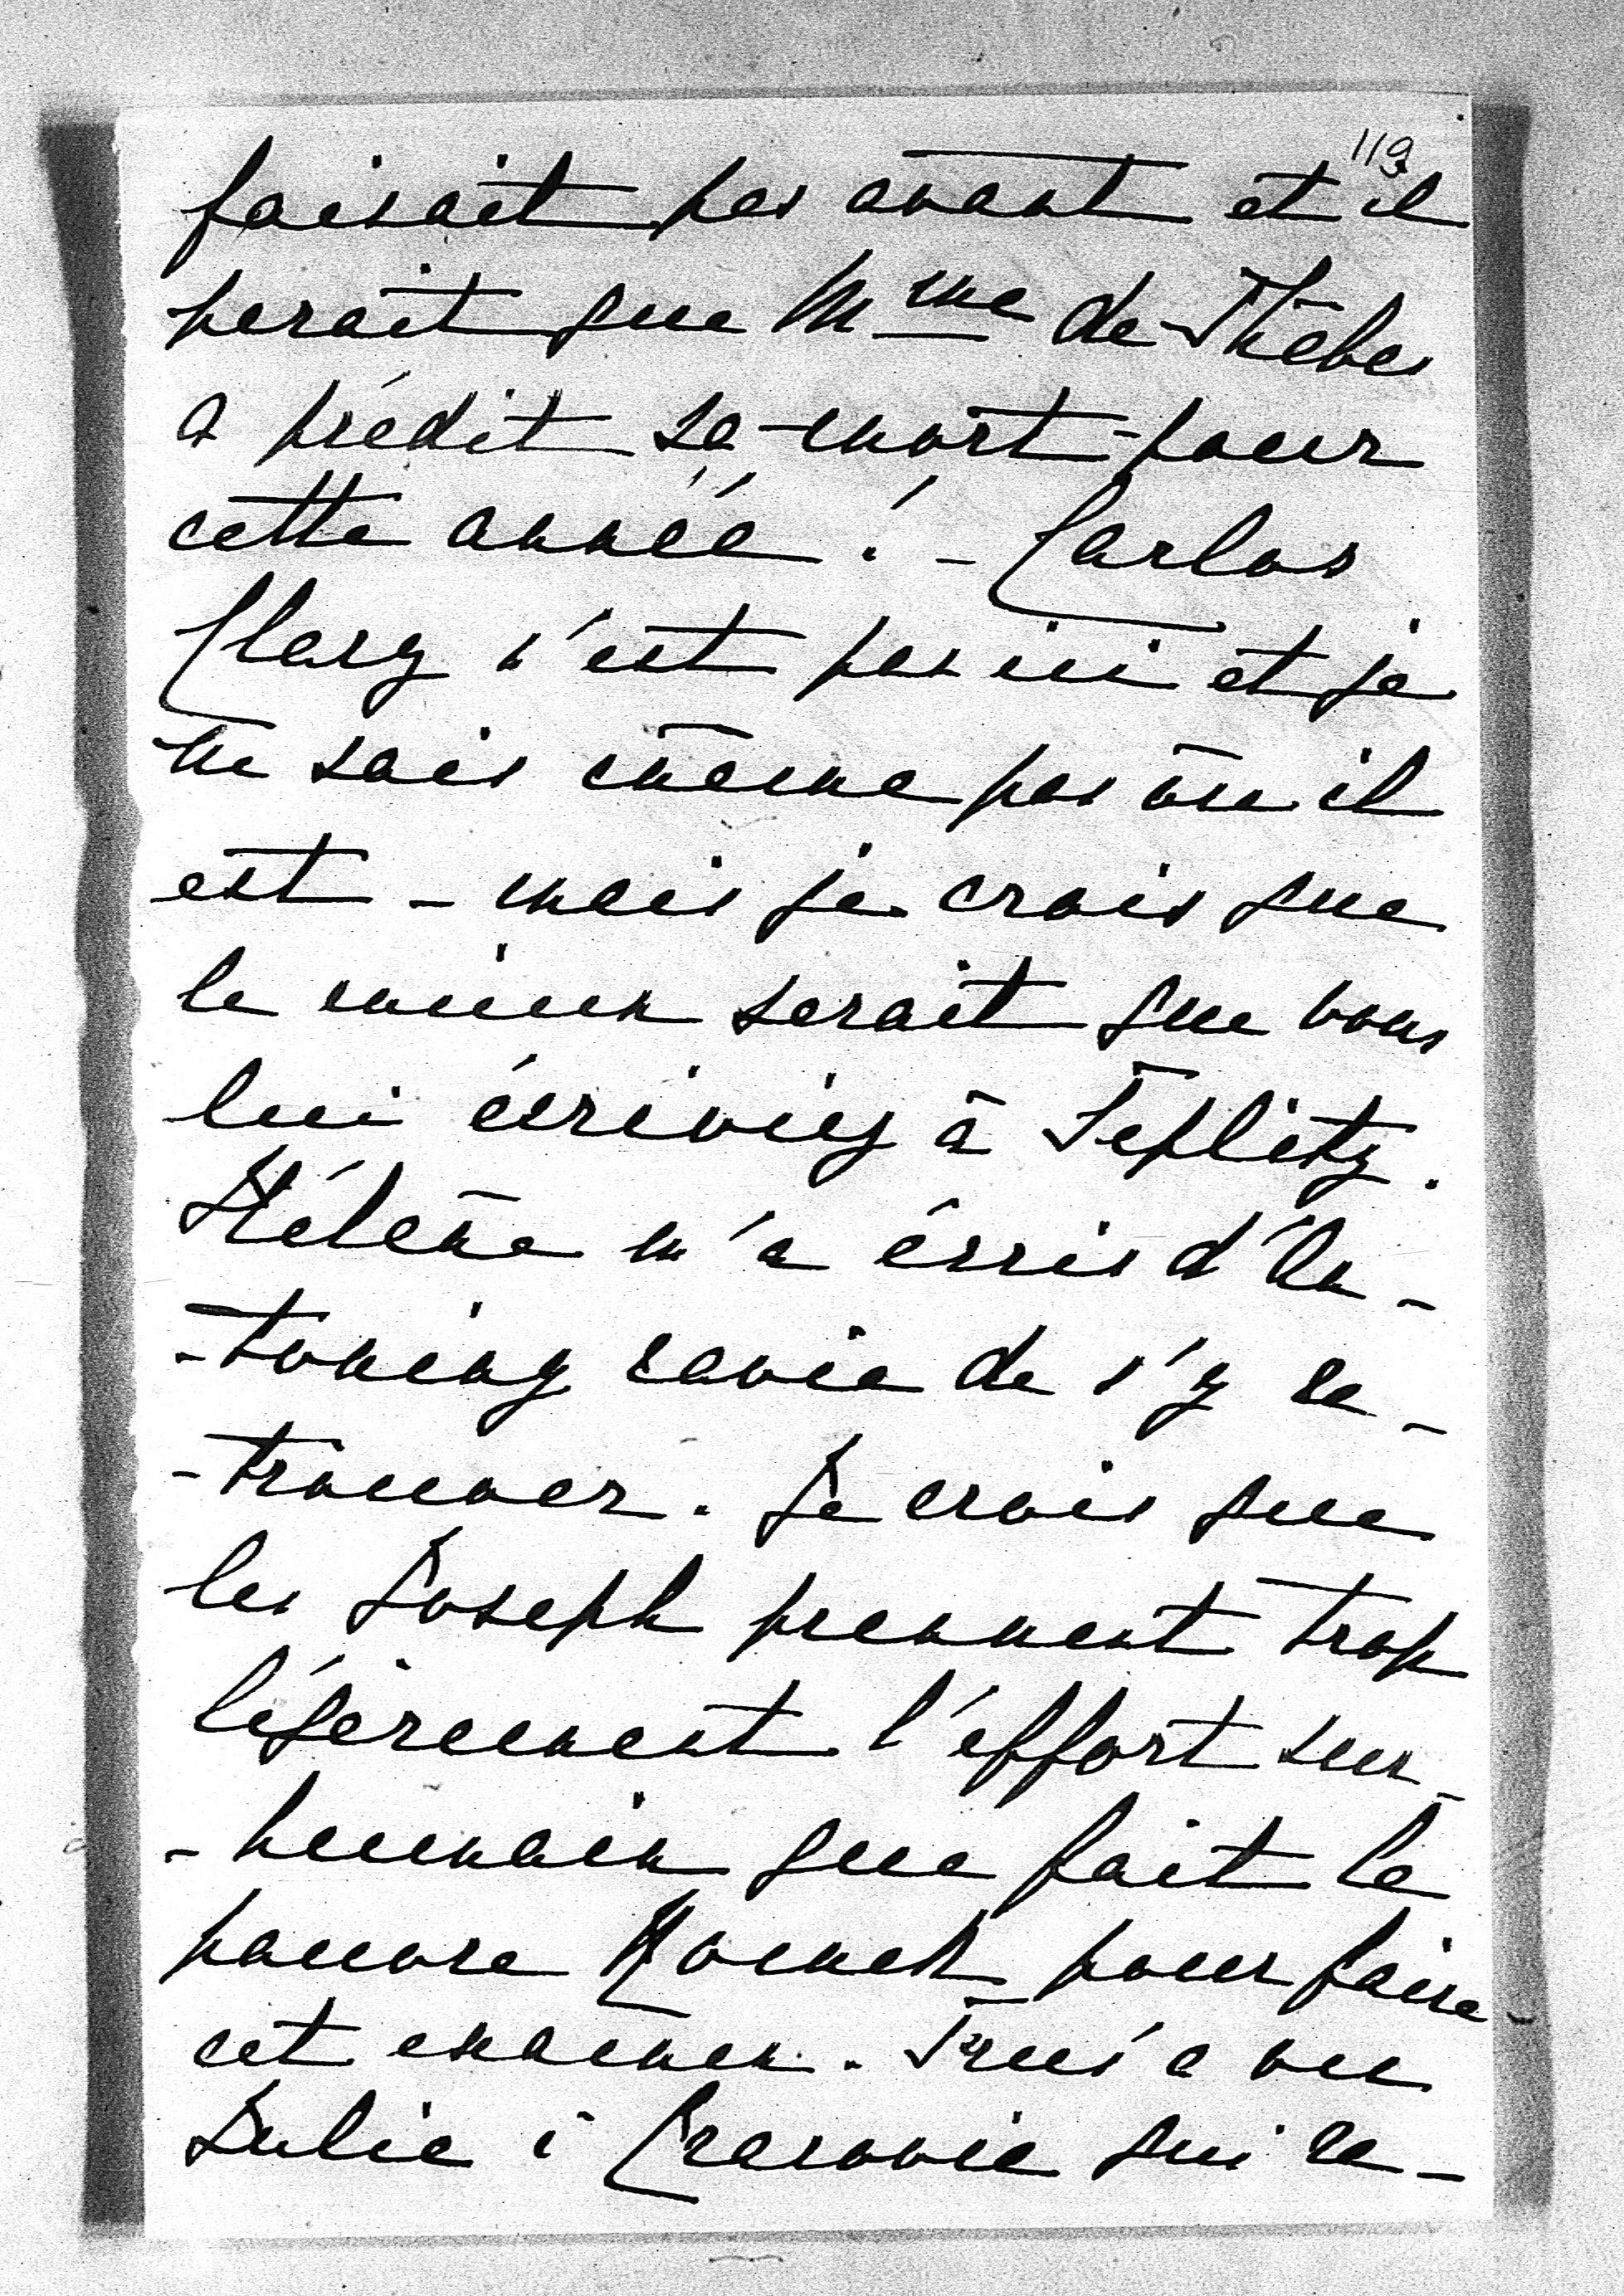 119
faisait pas avant et il
parait que Mme de Thèbes
a prédit sa mort pour
cette année! - Carlos
Clary n'est pas ici et je
ne sais même pas où il
est - mais je crois que
le mieux serait que vous
lui écriviez à Teplitz.
Hélène m'a écrit d'An-
-toniny ravie de s'y re-
-trouver. Je crois que
les Joseph prennent trop
légèrement l'effort sur-
-humain que fait le
pauvre pour faire
cet examen. a vu
Julie à Cracovie qui re-